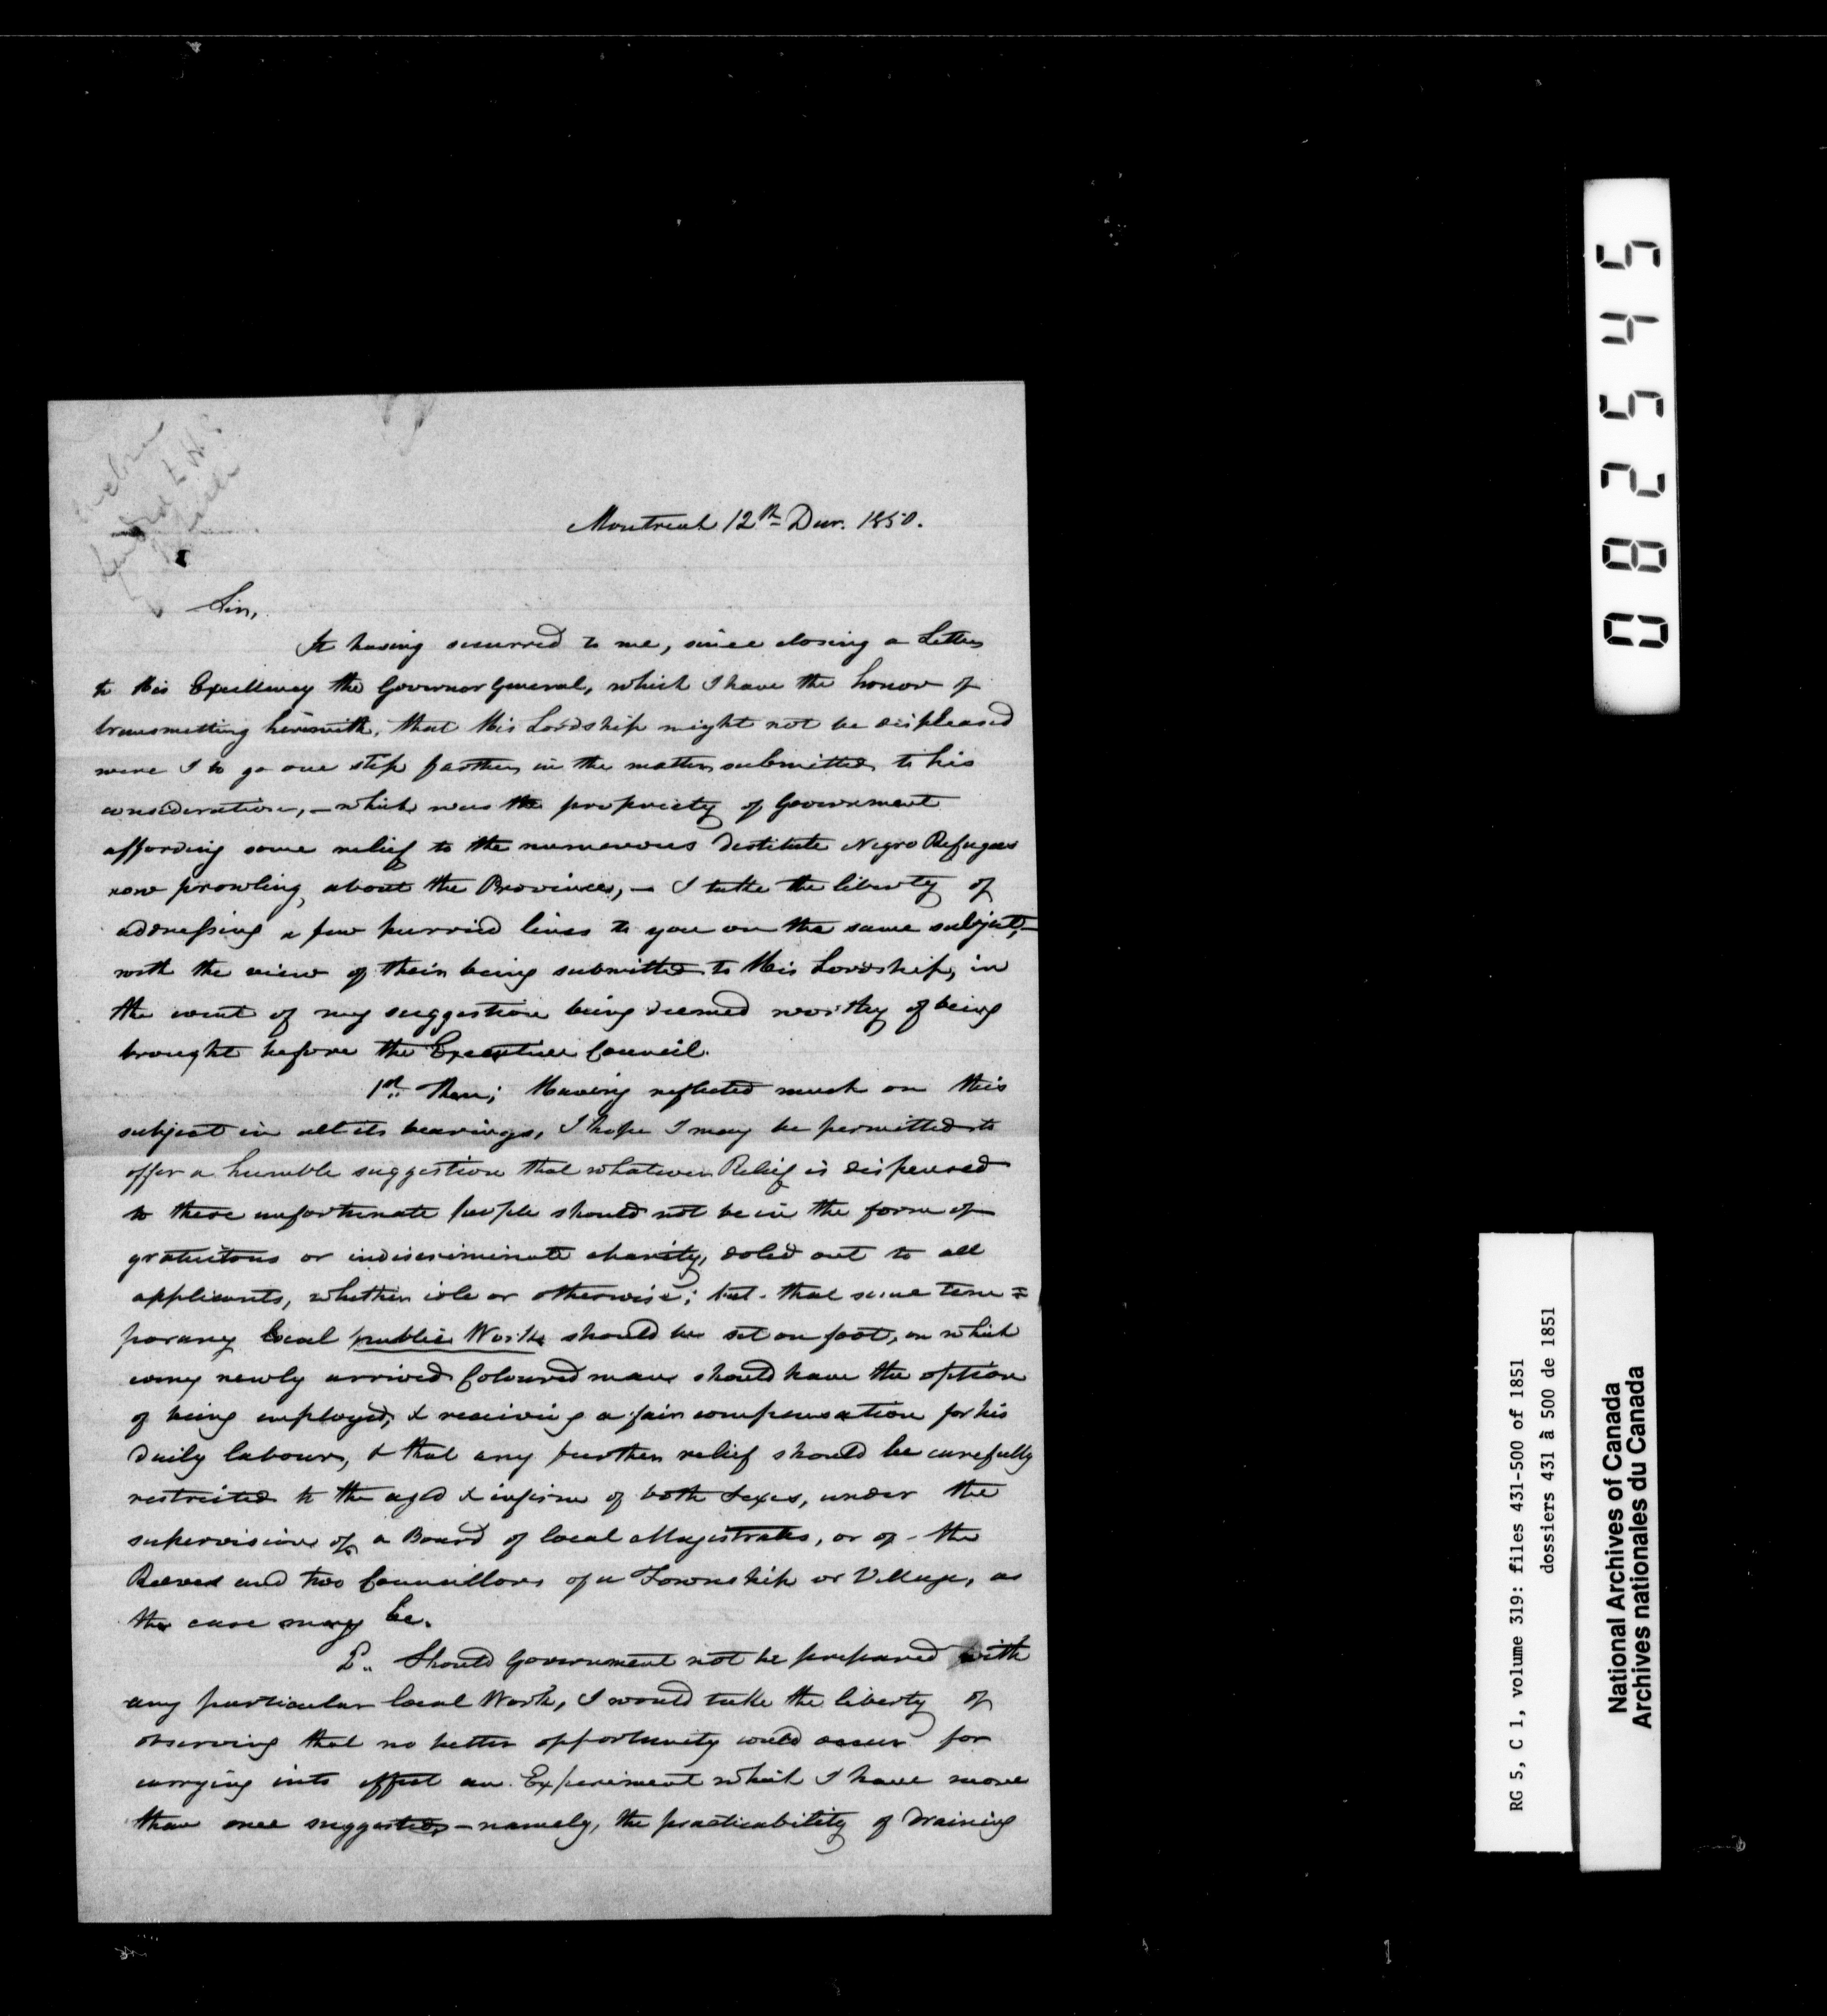 Montreal 12th Decr. 1850.
Sir,
It having occurred to me, since closing a Letter
to His Excellency the Governor General, which I have the honor of
transmitting herewith, that His Lordship might not be displeased
were I to go one step farther in the matter submitted to his
consideration, – which was the propriety of Government
affording some relief to the numerous destitute Negro Refugees
now prowling about the Province, – I take the liberty of
addressing a few hurried lines to you on the same subject, –
with the view of their being submitted to His Lordship, in
the event of my suggestion being deemed worthy of being
brought before the Executive Council.
1st. Then; Having reflected much on this
subject in all its bearings, I hope I may be permitted to
offer a humble suggestion that whatever Relief is dispensed
to these unfortunate people should not be in the form of
gratuitous or indiscriminate charity, doled out to all
applicants, whether idle or otherwise; but that some tem=
porary local public Work should be set on foot, on which
every newly arrived Coloured man should have the option
of being employed, & receiving a fair compensation for his
daily labour, & that any further relief should be carefully
restricted to the aged & infirm of both Sexes, under the
supervision of a Board of local Magistrates, or of the
Reeve and two Councillors of a Township or Village, as
the case may be.
2.. Should Government not be prepared with
any particular local Work, I would take the liberty of
observing that no better opportunity could occur for
carrying into effect an Experiment which I have more
than once suggested, – namely, the practicability of draining
082545
RG 5, C 1, volume 319: files 431-500 of 1851
dossiers 431 à 500 de 1851
National Archives of Canada
Archives nationales du Canada